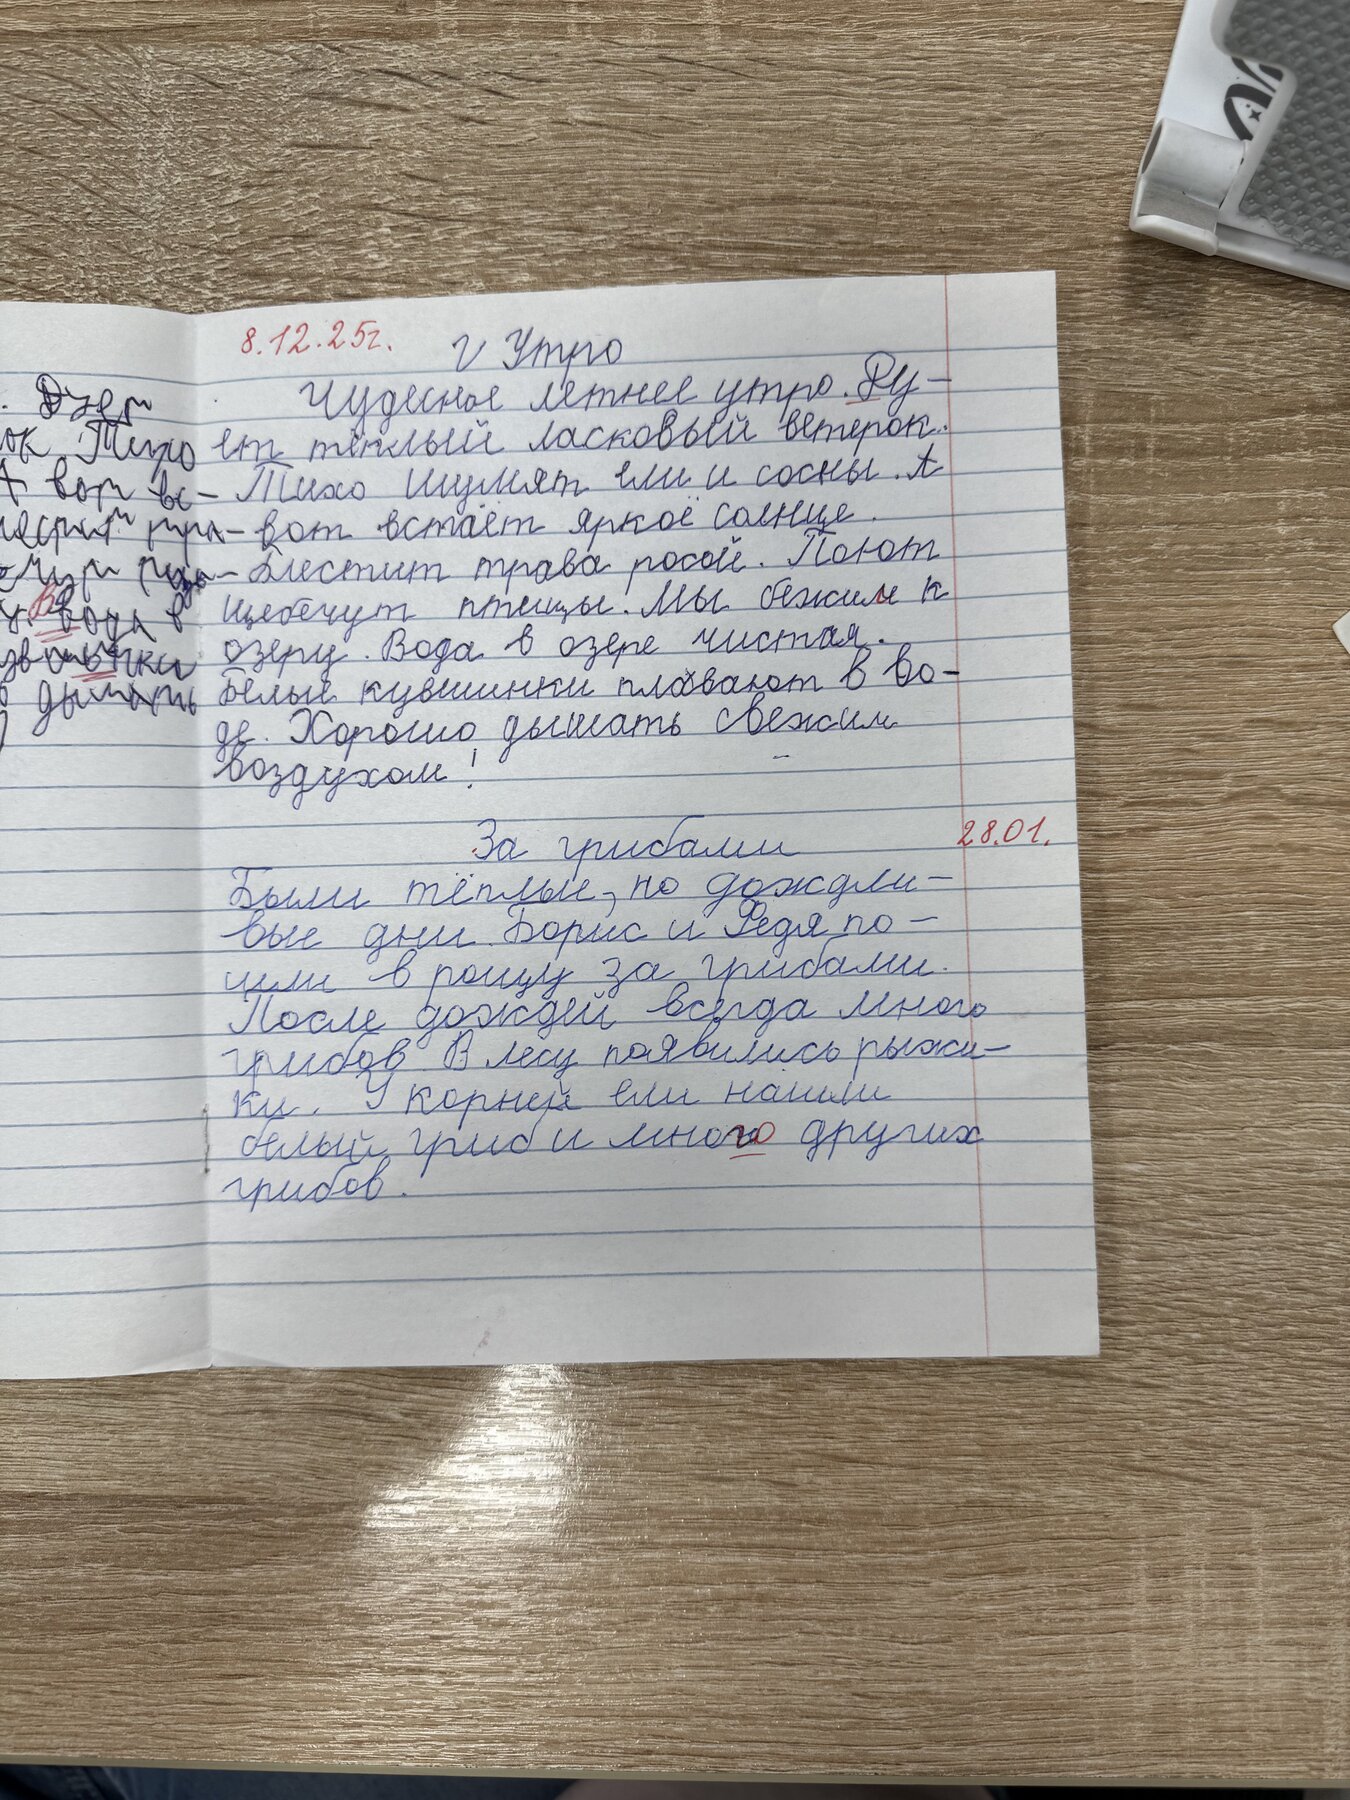 8.12.25г.
V Утро
Чудесное летнее утро. Ду-
ет тёплый ласковый ветерок.
Тихо шумят ели и сосны. А
вот встаёт яркоё солнце.
Блестит трава росой. Поют
щебечут птицы. Мы бежим к
озеру. Вода в озере чистая.
Белые кувшинки плавают в во-
де. Хорошо дышать свежим
воздухом!
За грибами
28.01.
Были тёплые, но дождли-
вые дни. Борис и Федя по-
шли в рощу за грибами.
После дождей всегда много
грибов. В лесу появились рыжи-
ки. У корней ели нашли
белый гриб и много других
грибов.
Дует
ок. Тихо
А вот вс-
вода в
дышать